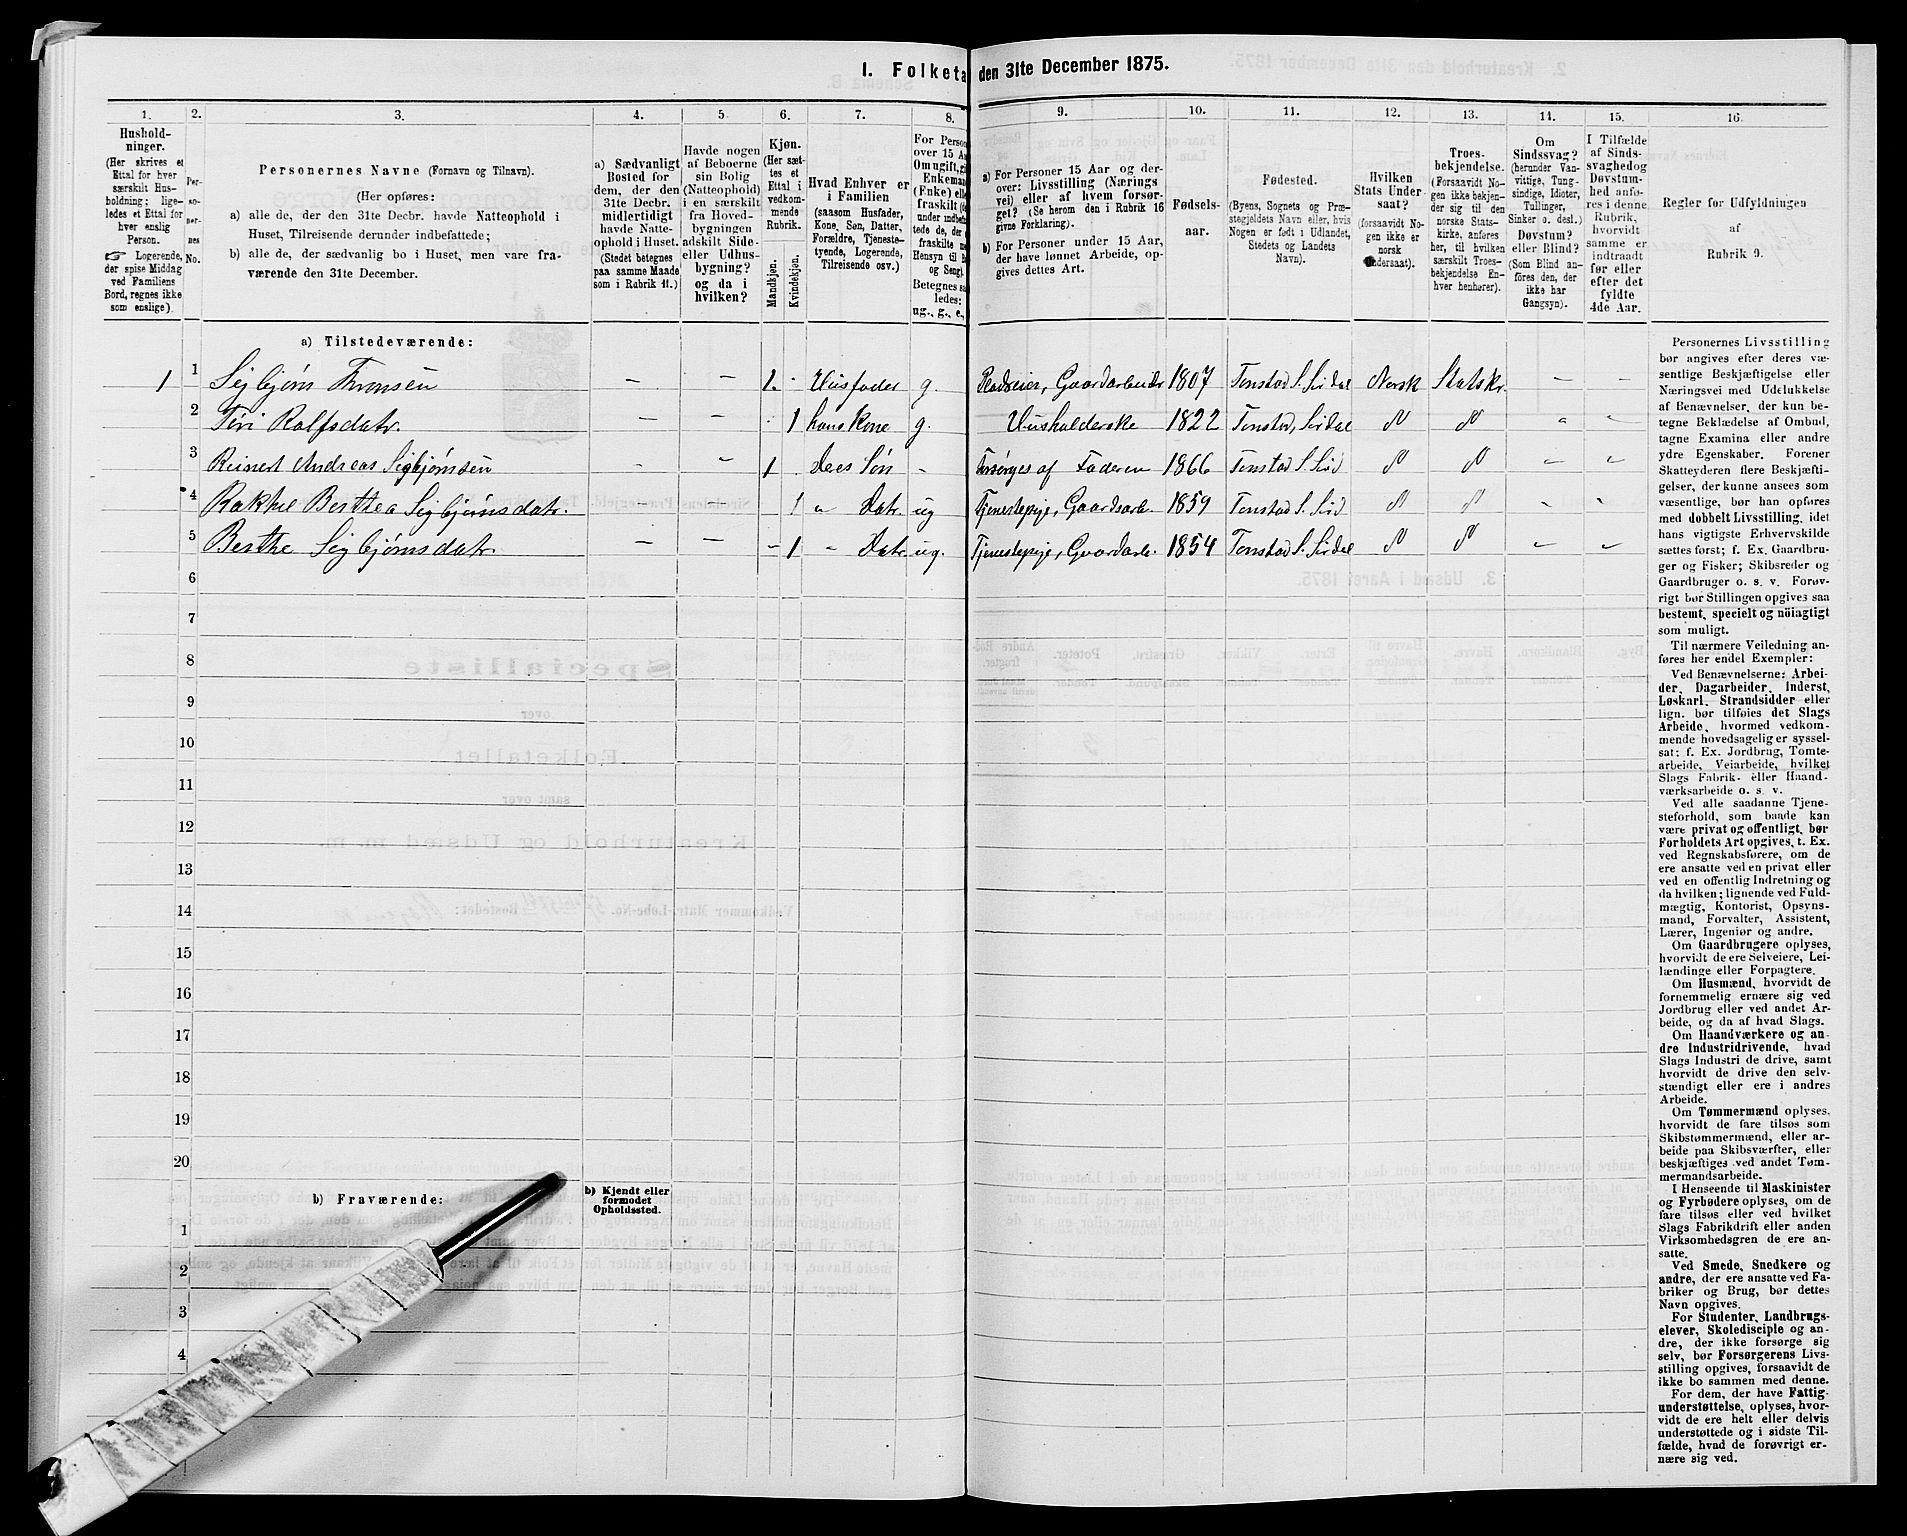 I. Folketa den 31te December 1875.
1.
Hushold-
ninger.
(Her skrives et
Ettal for hver
særskilt Hus-
holdning; lige-
ledes et Ettal for
hver enslig
Person.
☞ Logerende,
der spise Middag
ved Familiens
Bord, regnes ikke
som enslige).
2.
Per-
so-
ner-
nes
No.
3.
Personernes Navne (Fornavn og Tilnavn).
(Her opføres:
a) alle de, der den 31te Decbr. havde Natteophold i
Huset, Tilreisende derunder indbefattede;
b) alle de, der sædvanlig bo i Huset, men vare fra-
værende den 31te December.
4.
a) Sædvanligt
Bosted for
dem, der den
31te Decbr.
midlertidigt
havde Natte-
ophold i Huset.
(Stedet betegnes
paa samme Maade
som i Rubrik 11.)
5.
Havde nogen
af Beboerne
sin Bolig
(Natteophold)
i en særskilt
fra Hoved-
bygningen
adskilt Side-
eller Udhus-
bygning?
og da i
hvilken?
6.
Kjøn.
(Her sæt-
tes et
Ettal i
vedkom-
mende
Rubrik.
Mandkjøn.
Kvindekjøn.
7.
Hvad Enhver er
i Familien
(saasom Husfader,
Kone, Søn, Datter,
Forældre, Tjeneste-
tyende, Logerende,
Tilreisende osv.)
8.
For Person
over 15 Aa
Om ugift, gi
Enkemand
(Enke) elle
fraskilt (de
under indbefa
tede de, der e
fraskilte m
Hensyn til B
og Seng).
Betegnes saa
ledes:
ug., g., e.,
9.
a) For Personer 15 Aar og der-
over: Livsstilling (Nærings-
vei) eller af hvem forsør-
get? (Se herom den i Rubrik 16
givne Forklaring).
b) For Personer under 15 Aar,
der have lønnet Arbeide, op-
gives dettes Art.
10.
Fødsels-
aar.
11.
Fødested.
(Byens, Sognets og Præ-
stegjeldets Navn eller, hvis
Nogen er født i Udlandet,
Stedets og Landets
Navn).
12.
Hvilken
Stats Under-
saat?
(forsaavidt No-
gen ikke er
norsk
Undersaat).
13.
Troes-
bekjendelse.
(Forsaavidt No-
gen ikke bekjen-
der sig til den
norske Stats-
kirke, anføres
her, til hvilken
særskilt Troes-
bekjendelse En-
hver henhører).
14.
Om
Sindssvag?
(herunder Van-
vittige, Tung-
sindige, Idioter,
Tullinger,
Sinker o. desl.)
Døvstum?
eller Blind?
(Som Blind an-
føres den, der
ikke har
Gangsyn).
15.
I Tilfælde
af Sinds-
svaghed og
Døvstum-
hed anfø-
res i denne
Rubrik,
hvorvidt
samme er
indtraadt
før eller
efter det
fyldte
4de Aar.
16.
Regler for Udfyldningen
af
Rubrik 9.
a) Tilstedeværende:
1 1 Sigbjørn Tronsen – – 1. . Husfader g. Pladseier, Gaardarbeider 1807 Tonstad S. Sirdal Norsk Statskr. – –
2 Siri Rolfsdatr. – – . 1 hans Kone g. Husholderske 1822 Tonstad, Sirdal N N " "
3 Reinert Andreas Sigbjørnsen – – 1 . Dees Søn – Forsørges af Faderen 1866 Tonstad S. Sird N N – –
4 Rakkel Berthea Sigbjørnsdatr. – – 1 " Datr. ug Tjenestepige, Gaardsarb. 1859 Tonstad S. Sird N N – –
5 Berthe Sigbjørnsdatr. – – – 1 " Datr. ug. Tjenestepige, Gaardarb. 1854 Tonstad S. Sirdal N N – –
6
7
8
9
10
11
12
13
14
15
16
17
18
19
20
b) Fraværende:
b) Kjendt eller
formodet
Opholdssted.
1
2
3
4
Personernes Livsstilling
bør angives efter deres væ-
sentlige Beskjæftigelse eller
Næringsvei med Udelukkelse
af Benævnelser, der kun be-
tegne Beklædelse af Ombud,
tagne Examina eller andre
ydre Egenskaber. Forener
Skatteyderen flere Beskjæfti-
gelser, der kunne ansees som
væsentlige, bør han opføres
med dobbelt Livsstilling, idet
hans vigtigste Erhvervskilde
sættes først; f. Ex. Gaardbru-
ger og Fisker; Skibsreder og
Gaardbruger o. s. v. Forøv-
rigt bør Stillingen opgives saa
bestemt, specielt og nöiagtigt
som muligt.
Til nærmere Veiledning an-
føres her endel Exempler:
Ved Benævnelserne: Arbei-
der, Dagarbeider, Inderst,
Løskarl, Strandsidder eller
lign. bør tilføies det Slags
Arbeide, hvormed vedkom-
mende hovedsagelig er syssel-
sat; f. Ex. Jordbrug, Tomte-
arbeide, Veiarbeide, hvilket
Slags Fabrik- eller Haand-
værksarbeide o. s. v.
Ved alle saadanne Tjene-
steforhold, som baade kan
være privat og offentligt, bør
Forholdets Art opgives, t. Ex.
ved Regnskabsførere, om de
ere ansatte ved en privat eller
ved en offentlig Indretning og
da hvilken; lignende ved Fuld-
mægtig, Kontorist, Opsyns-
mand, Forvalter, Assistent,
Lærer, Ingeniør og andre.
Om Gaardbrugere oplyses,
hvorvidt de ere Selveiere, Lei-
lændinge eller Forpagtere.
Om Husmænd, hvorvidt de
fornemmelig ernære sig ved
Jordbrug eller ved andet Ar-
beide, og da af hvad Slags.
Om Haandværkere og an-
dre Industridrivende, hvad
Slags Industri de drive, samt
hvorvidt de drive den selv-
stændigt eller ere i andres
Arbeide.
Om Tømmermænd oplyses,
hvorvidt de fare tilsøs som
Skibstømmermænd, eller ar-
beide paa Skibsværfter, eller
beskjæftiges ved andet Tøm-
mermandsarbeide.
I Henseende til Maskinister
og Fyrbødere oplyses, om de
fare tilsøs eller ved hvilket
Slags Fabrikdrift eller anden
Virksomhedsgren de ere an-
satte.
Ved Smede, Snedkere og
andre, der ere ansatte ved Fa-
briker og Brug, bør dettes
Navn opgives.
For Studenter, Landbrugs-
elever, Skoledisciple og an-
dre, der ikke forsørge sig
selv, bør Forsørgerens Livs-
stilling opgives, forsaavidt de
ikke bo sammen med denne.
For dem, der have Fattig-
understøttelse, oplyses, hvor-
vidt de ere helt eller delvis
understøttede og i sidste Til-
fælde, hvad de forøvrigt er-
nære sig ved.